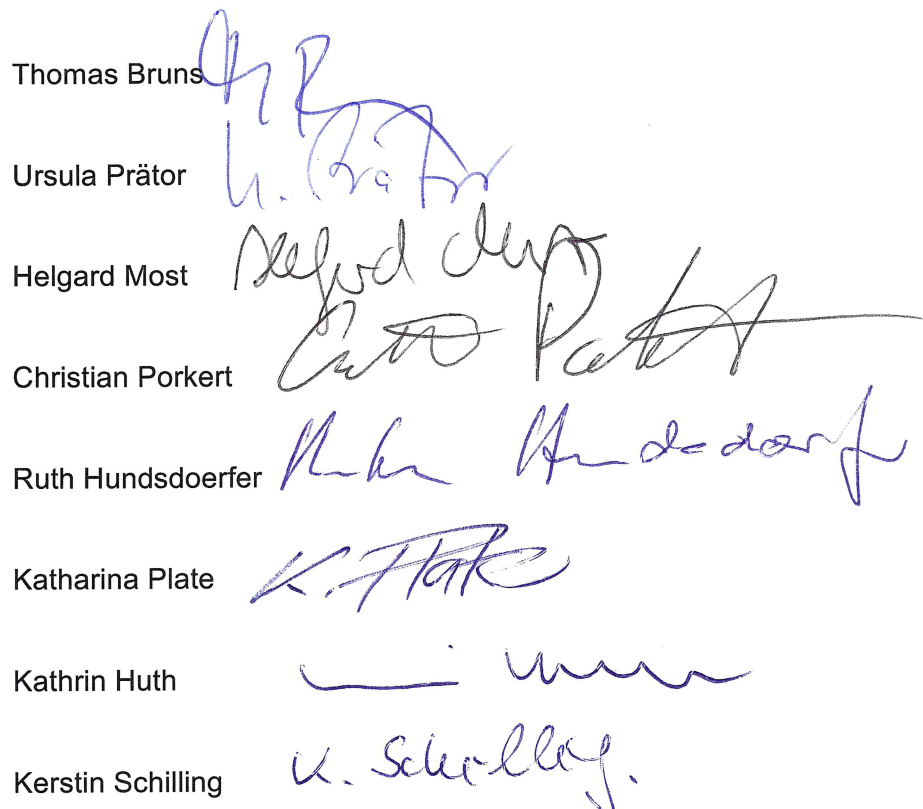 Thomas Bruns
Ursula Prätor U. Prätor
Helgard Most Helgard
Christian Porkert
Ruth Hundsdoerfer Hundsdoerfer
Katharina Plate K. Plate
Kathrin Huth
Kerstin Schilling K. Schilling.